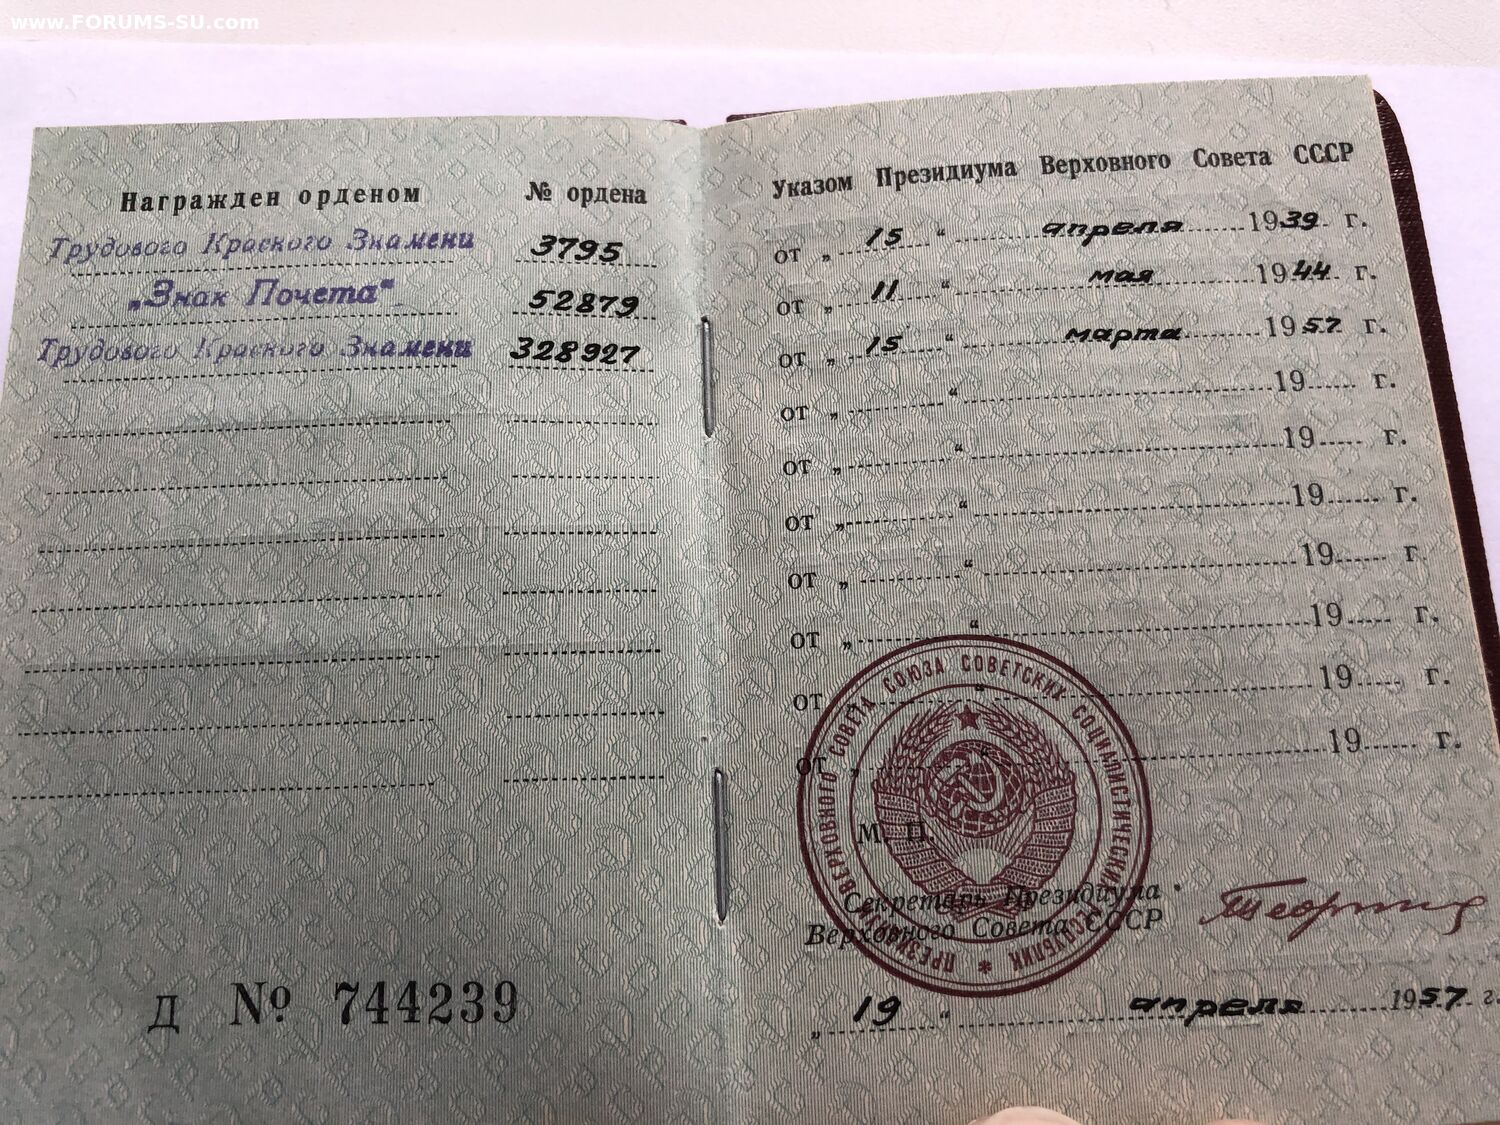 www.FORUMS-SU.com
Награжден орденом № ордена
Трудового Красного Знамени 3795
„Знак Почета“ 52879
Трудового Красного Знамени 328927
Д № 744239
Указом Президиума Верховного Совета СССР
от „ 15 “ апреля 1939 г.
от „ 11 “ мая 1944 г.
от „ 15 “ марта 1957 г.
от „ “ 19 г.
от „ “ 19 г.
от „ “ 19 г.
от „ “ 19 г.
от „ “ 19 г.
от „ “ 19 г.
от „ “ 19 г.
ПРЕЗИДИУМ ВЕРХОВНОГО СОВЕТА СОЮЗА СОВЕТСКИХ СОЦИАЛИСТИЧЕСКИХ РЕСПУБЛИК *
М. П.
Секретарь Президиума
Верховного Совета СССР
„ 19 “ апреля 1957 г.